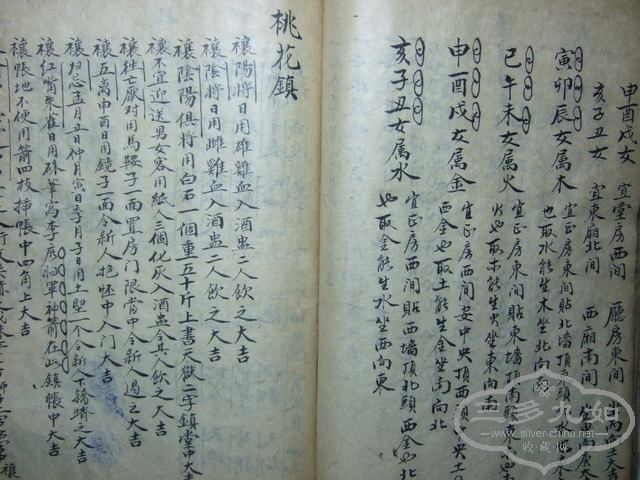 申酉戌女 宜堂房西間 廳房東間
亥子丑女 宜東廂北間 西廂南間
寅卯辰女属木 宜正房東間貼北墙頂
也取水能生木坐北向
巳午未女属火 宜正房東間貼東墙頂南頭
火也取木能生火坐東向南
申酉戌女属金 宜正房西間安中央頂
西金也取土能生金坐南向北
亥子丑女属水 宜正房西間貼西墙頂北頭西金也北
也取金能生水坐西向東
桃花鎮
禳陽將日用雄雞血入酒盅二人飲之大吉
禳陰將日用雌雞血入酒盅二人飲之大吉
禳陰陽俱將用白石一個重五十斤上書天獄二字鎮堂中大吉
禳不宜迎送男女客用紙人三個化灰入酒盅令其飲之大吉
禳徃亡厭对用馬鞍子一面置房门限當中令新人過之大吉
禳五鬼申酉日用鏡子一面令新人抱怀中入门大吉
禳妇忌孟月丑日仲月寅日季月子日用土堲一个令新人下轎躋之大吉
禳红嘴朱雀日用硃筆寫李廣將軍神箭在此鎮帳中大吉
禳帳地不便用箭四枚挿帳中四角上大吉
三多九如
收藏網
www.silver-china.net